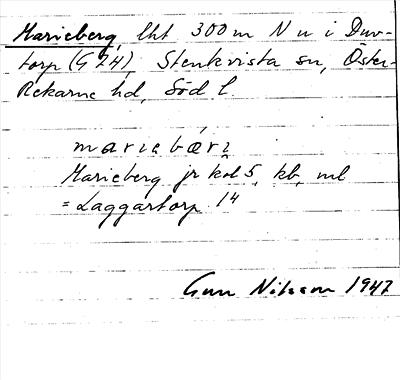 Marieberg, lht 300 m N u i Duv-
torp (G 74), Stenkvista sn, Öster-
Rekarne hd, Söd l.
mariebæri
Marieberg jr kol 5, kb, ml
= Laggartorp 14
Gun Nilsson 1947